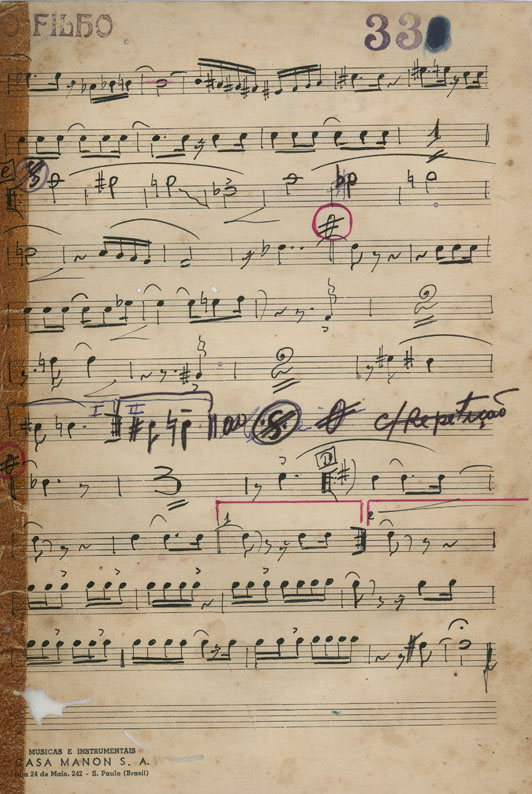 O FILHO
33
1
2
2
I II
ao 𝄋 c/ Repetição
3
D
1
2
MUSICAS E INSTRUMENTAIS
CASA MANON S. A.
24 de Maio, 242 - S. Paulo (Brasil)